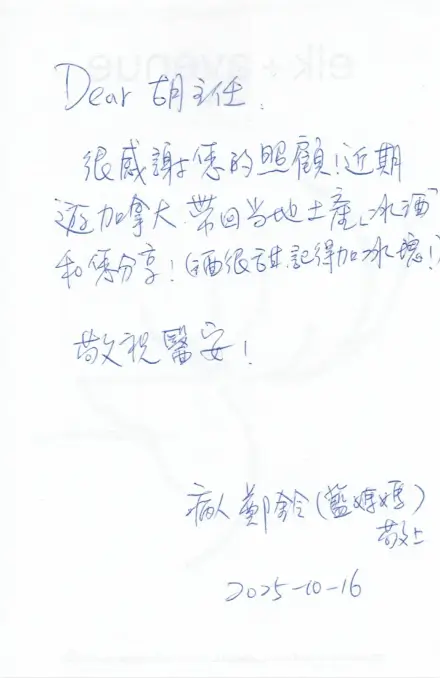 Dear 胡主任:
很感謝您的照顧!近期
遊加拿大.帶回当地土產「冰酒」
和您分享!(酒很甜記得加冰塊!)
敬祝醫安!
病人鄭鈴(藍媽媽)
敬上
2025-10-16
elk + avenue